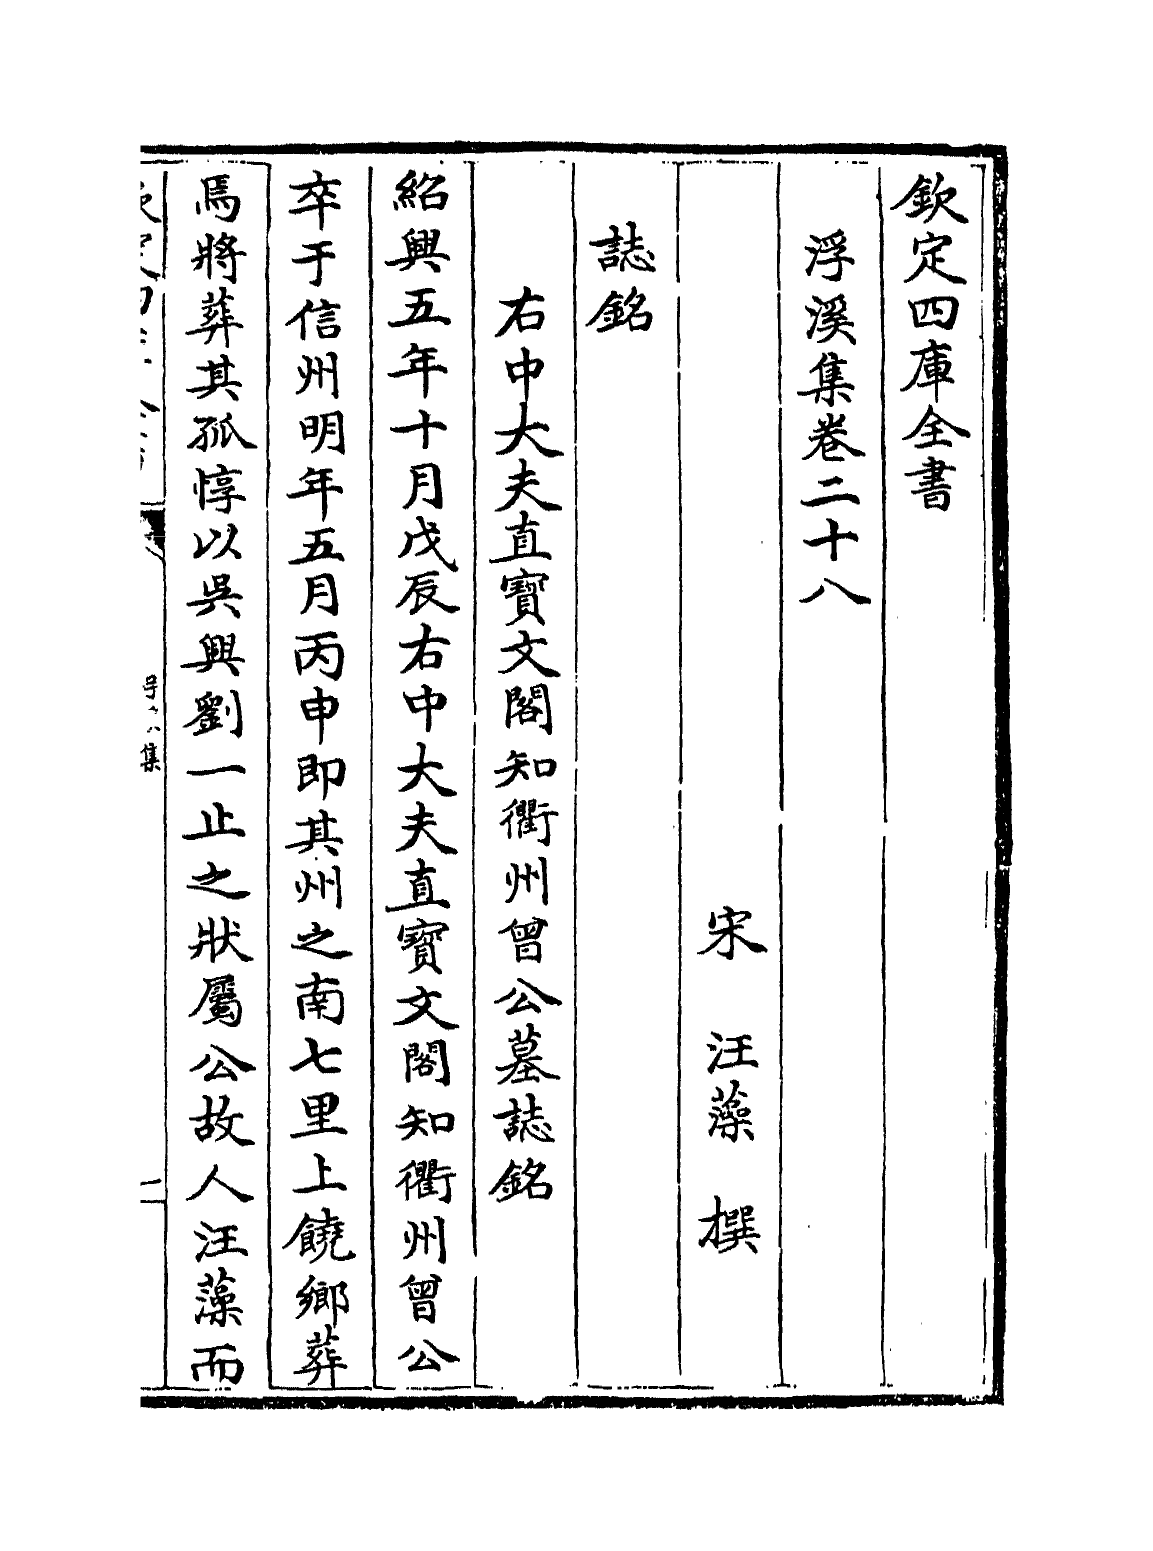 欽定四庫全書
浮溪集卷二十八
宋　汪藻　撰
誌銘
右中大夫直寳文閣知衢州曾公墓誌銘
紹興五年十月戊辰右中大夫直寳文閣知衢州曾公
卒于信州明年五月丙申即其州之南七里上饒鄉葬
焉將葬其孤惇以吳興劉一止之狀屬公故人汪藻而